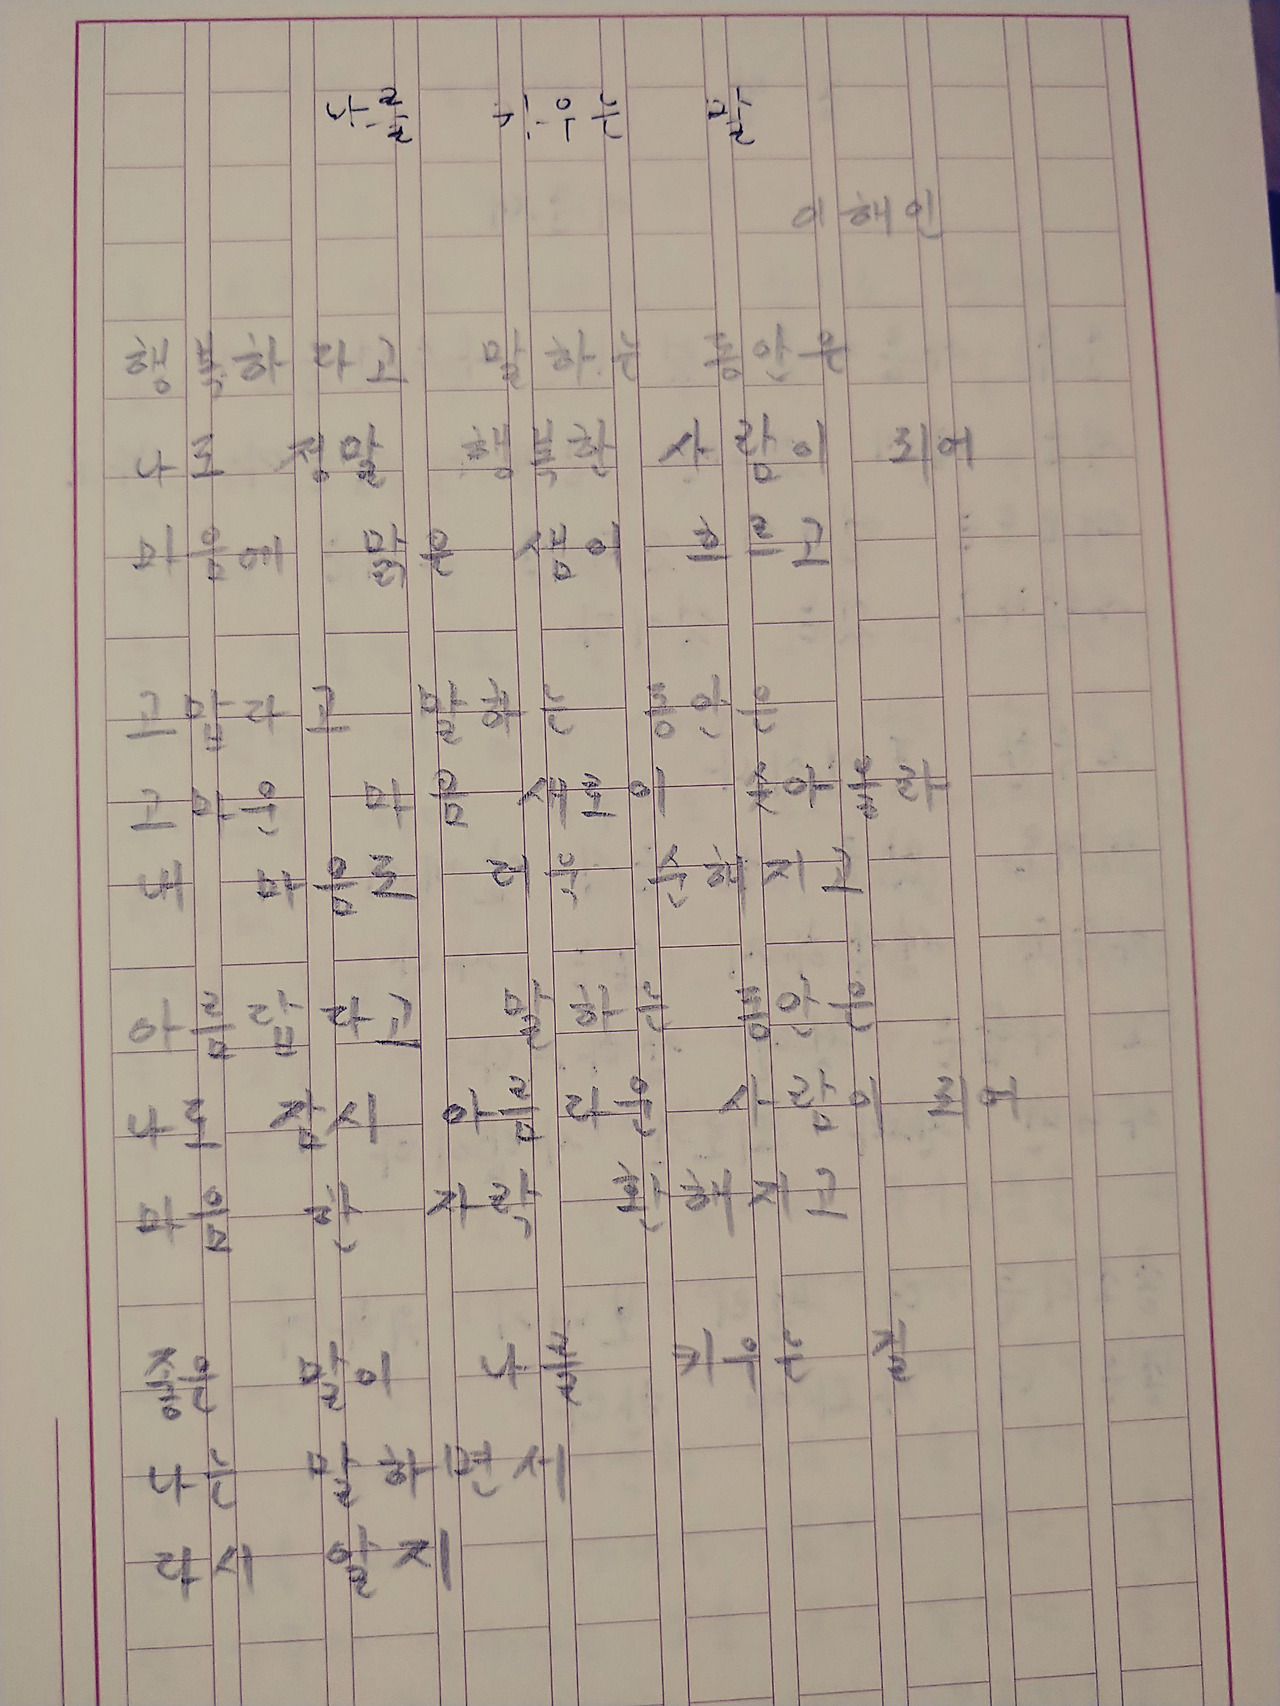 나를 키우는 말
이해인
행복하다고 말하는 동안은
나도 정말 행복한 사람이 되어
마음에 맑은 샘이 흐르고
고맙다고 말하는 동안은
고마운 마음 새로이 솟아올라
내 마음도 더욱 순해지고
아름답다고 말하는 동안은
나도 잠시 아름다운 사람이 되어
마음 한 자락 환해지고
좋은 말이 나를 키우는 걸
나는 말하면서
다시 알지